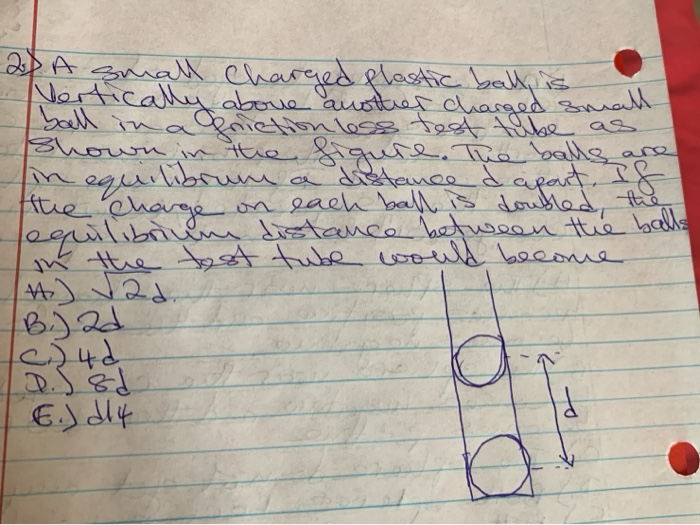 2.) A small charged plastic ball is
vertically above another charged small
ball in a frictionless test tube as
shown in the figure. The balls are
in equilibrum a distance d apart. If
the charge on each ball is doubled, the
equilibrium distance between the balls
in the test tube would become
A.) √2d.
B.) 2d
C.) 4d
D.) 8d
E.) d/4
d